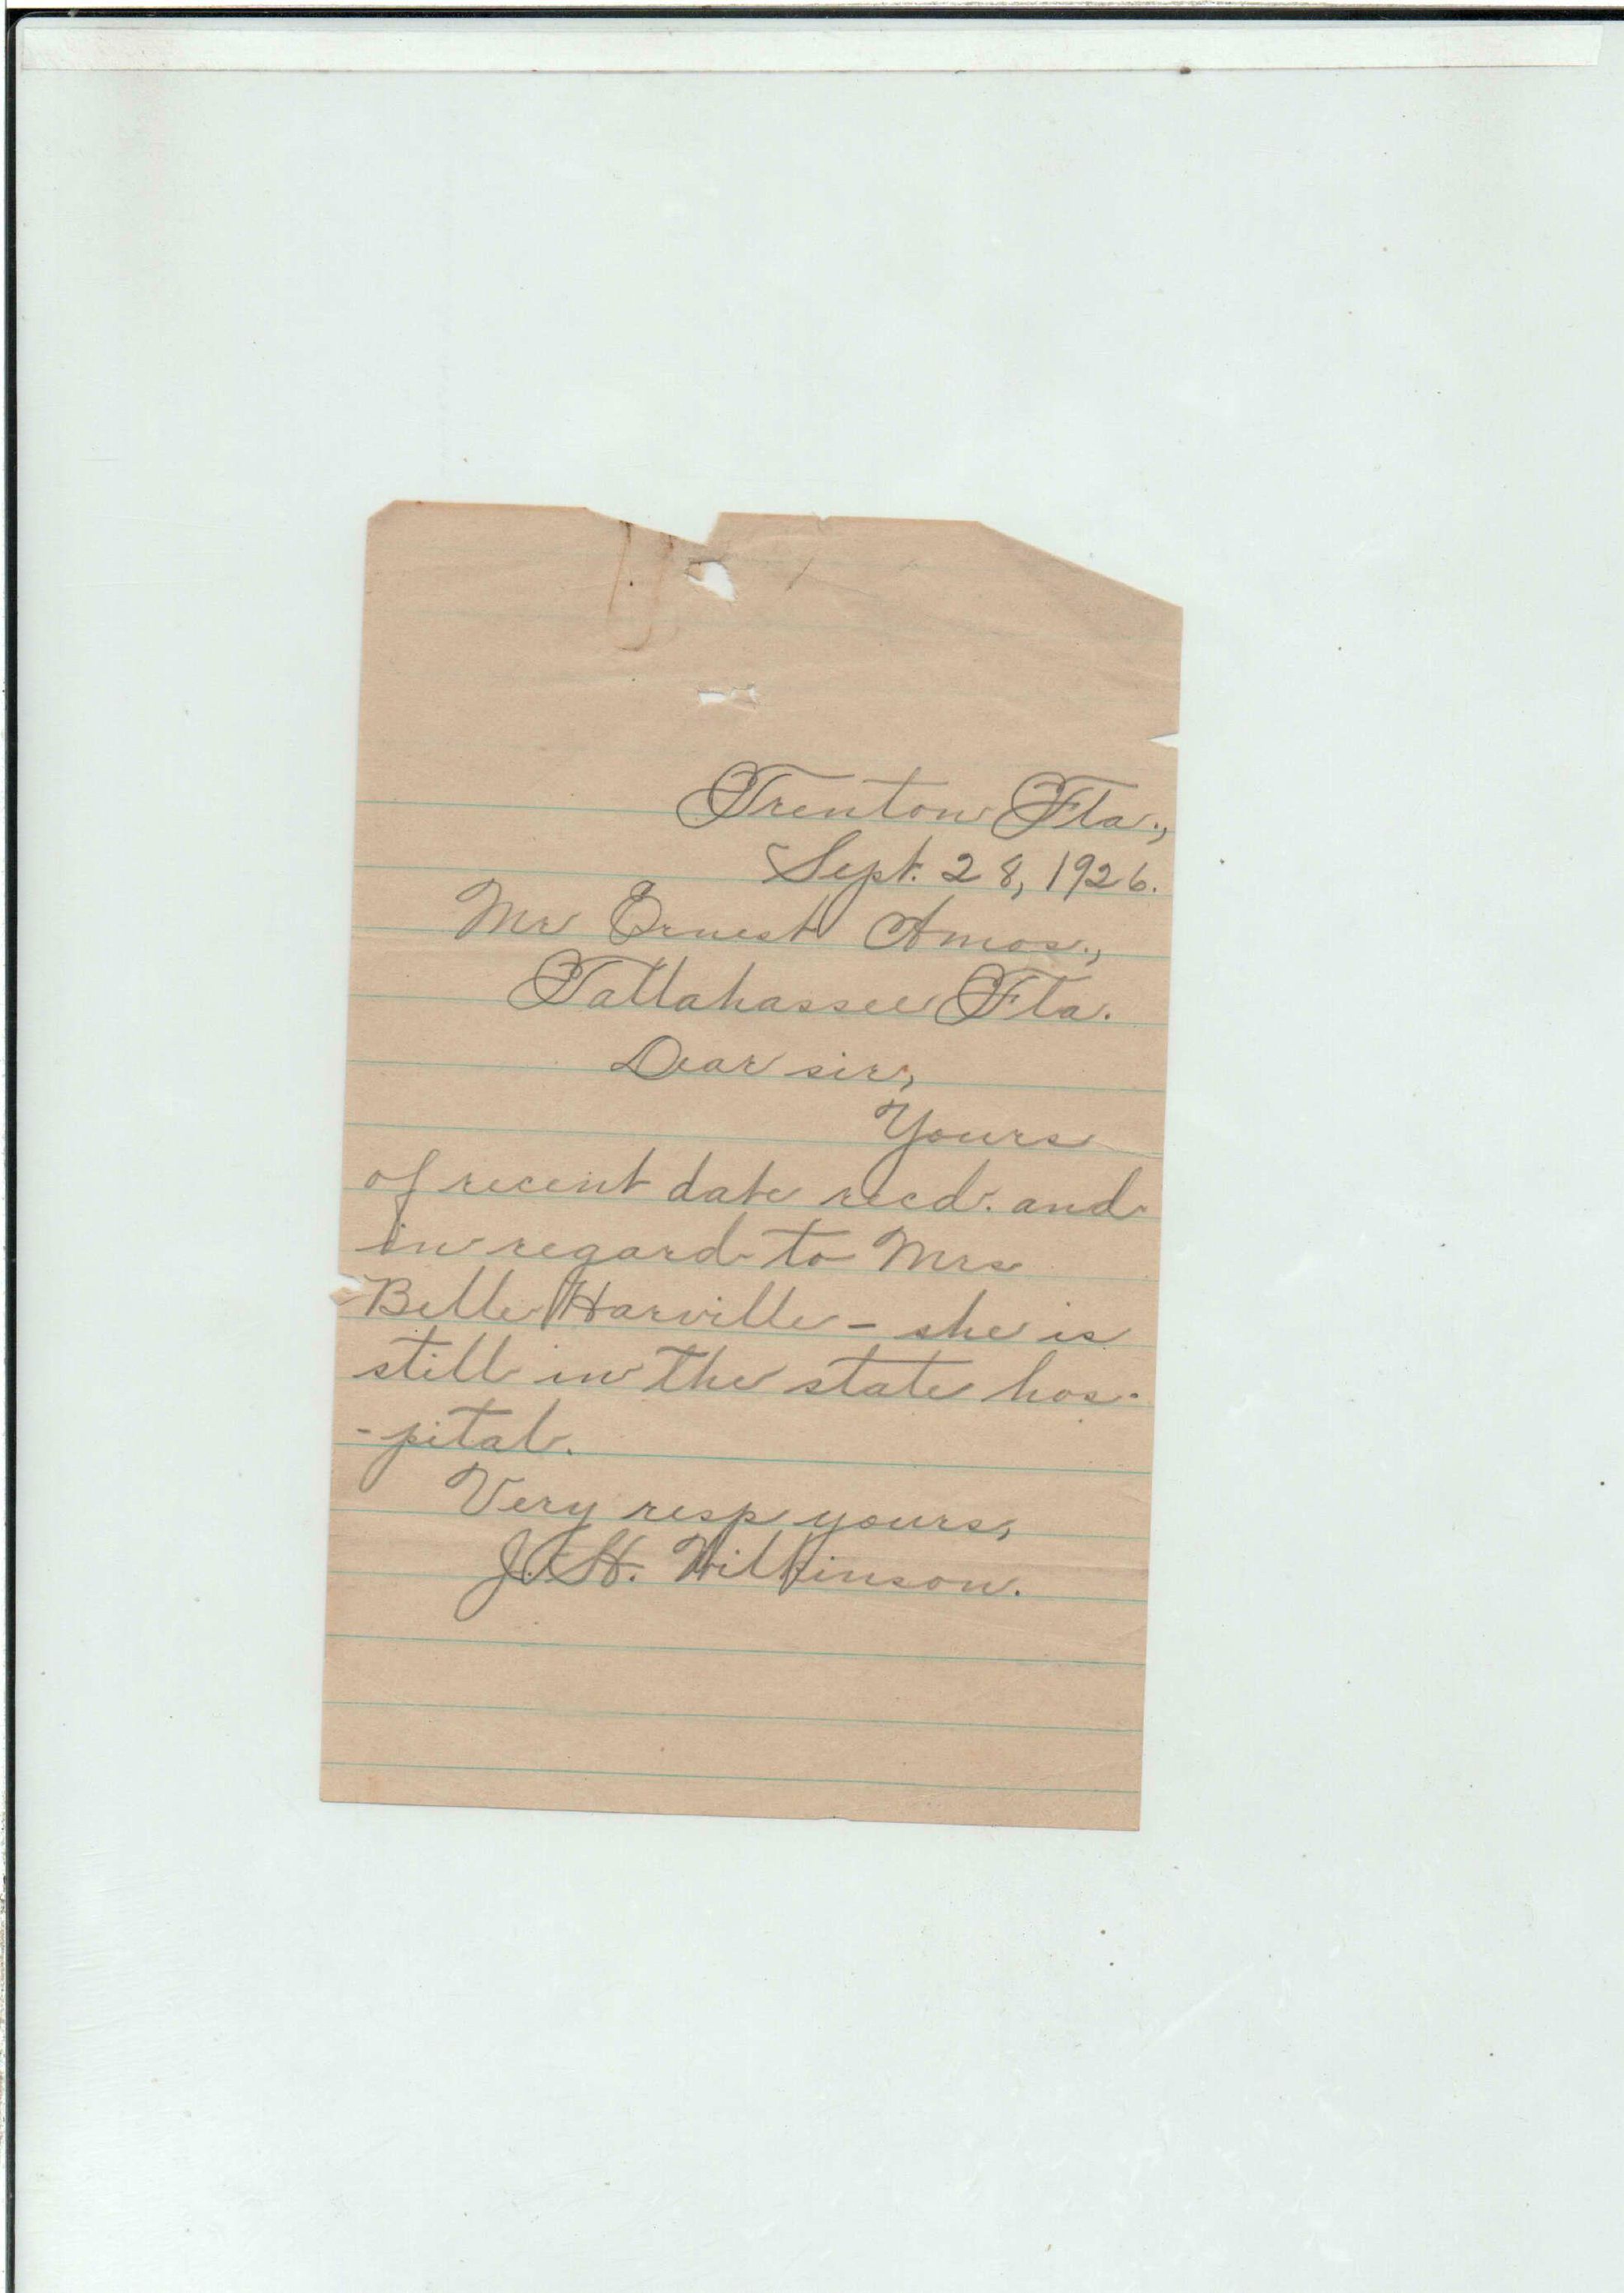 Trenton Fla.,
Sept. 28, 1926.
Mr Ernest Amos.,
Tallahassee Fla.
Dear sir,
Yours
of recent date recd. and
in regard to Mrs
Belle Harville - she is
still in the state hos-
-pital.
Very resp yours,
J. H. Wilkinson.